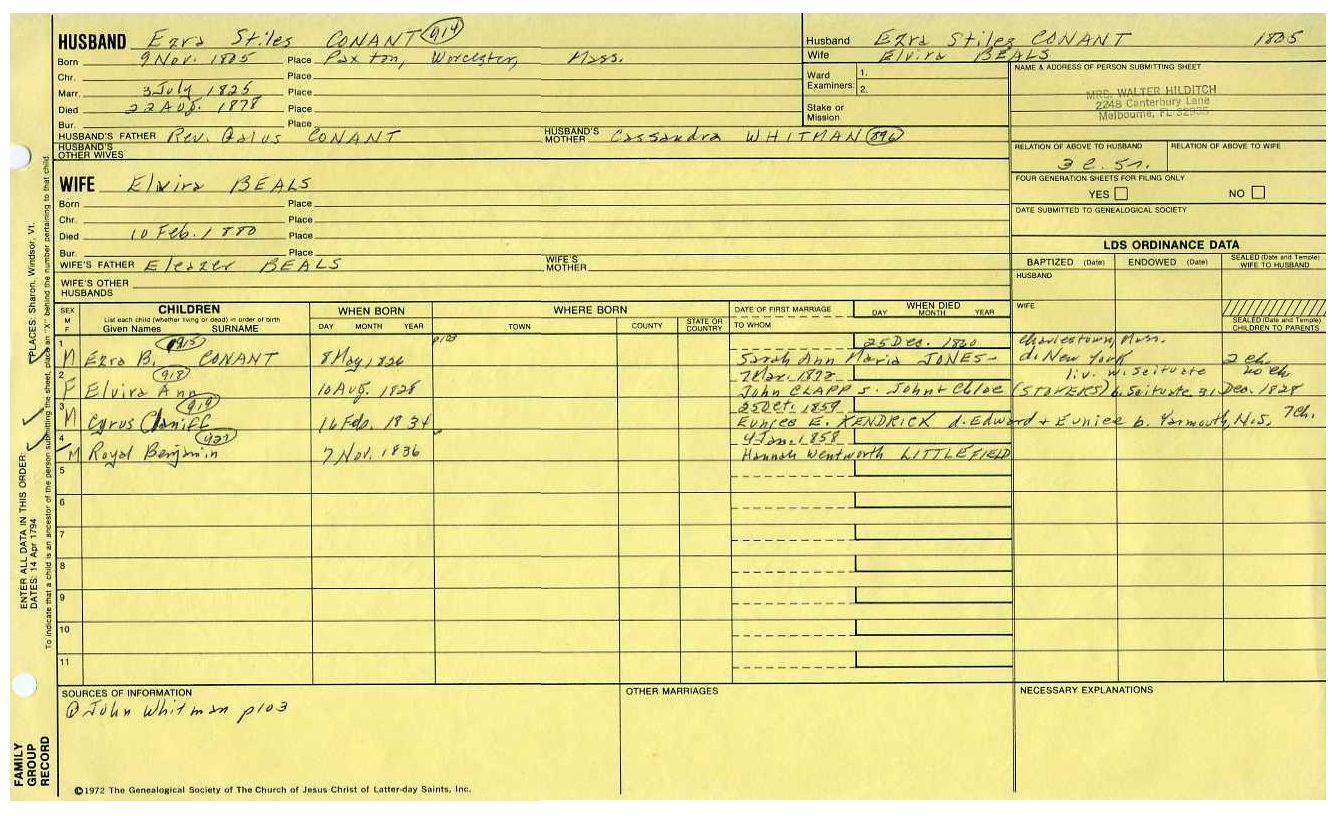 HUSBAND Ezra Stiles CONANT 914
Born 9 Nov. 1805 Place Paxton, Worcester, Mass.
Chr. Place
Marr. 3 July 1825 Place
Died 22 Aug. 1878 Place
Bur. Place
HUSBAND'S FATHER Rev. Gaius CONANT HUSBAND'S MOTHER Cassandra WHITMAN 896
HUSBAND'S OTHER WIVES
Husband Ezra Stiles CONANT 1805
Wife Elvira BEALS
Ward Examiners: 1.
2.
Stake or Mission
NAME & ADDRESS OF PERSON SUBMITTING SHEET
MRS. WALTER HILDITCH
2248 Canterbury Lane
Melbourne, FL 32935
RELATION OF ABOVE TO HUSBAND RELATION OF ABOVE TO WIFE
3 c. 5r.
FOUR GENERATION SHEETS FOR FILING ONLY
YES NO
DATE SUBMITTED TO GENEALOGICAL SOCIETY
WIFE Elvira BEALS
Born Place
Chr. Place
Died 10 Feb. 1880 Place
Bur. Place
WIFE'S FATHER Eleazer BEALS WIFE'S MOTHER
WIFE'S OTHER HUSBANDS
LDS ORDINANCE DATA
BAPTIZED (Date) ENDOWED (Date) SEALED (Date and Temple) WIFE TO HUSBAND
HUSBAND
WIFE
SEALED (Date and Temple) CHILDREN TO PARENTS
SEX M F CHILDREN WHEN BORN WHERE BORN DATE OF FIRST MARRIAGE WHEN DIED
List each child (whether living or dead) in order of birth
Given Names SURNAME DAY MONTH YEAR TOWN COUNTY STATE OR COUNTRY TO WHOM DAY MONTH YEAR
1 915 p103 25 Dec. 1860 Charlestown, Mass.
M Ezra B. CONANT 8 May 1826 Sarah Ann Maria JONES- d. New York 2 ch.
2 918 7 Mar. 1872 liv. W. Scituate no ch
F Elvira Ann 10 Aug. 1828 John CLAPP s. John + Chloe (STOVERS) b. Scituate 31 Dec. 1828
3 919 25 Oct. 1859
M Cyrus 16 Feb. 1834 Eunice E. KENDRICK d. Edward + Eunice b. Yarmouth, N.S. 7 ch.
4 927 4 Jan. 1858
M Royal Benjamin 7 Nov. 1836 Hannah Wentworth LITTLEFIELD
5
6
7
8
9
10
11
SOURCES OF INFORMATION OTHER MARRIAGES NECESSARY EXPLANATIONS
① John Whitman p103
©1972 The Genealogical Society of The Church of Jesus Christ of Latter-day Saints, Inc.
FAMILY GROUP RECORD
ENTER ALL DATA IN THIS ORDER: PLACES: Sharon, Windsor, Vt.
DATES: 14 Apr 1794
To indicate that a child is an ancestor of the person submitting the sheet, place an "X" behind the number pertaining to that child.